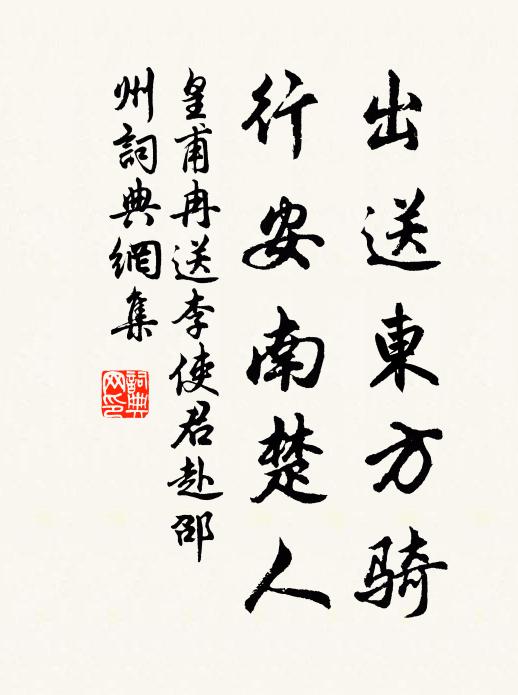 出送東方騎
行安南楚人
皇甫冉送李使君赴邵
州詞典網集
詞典
网印